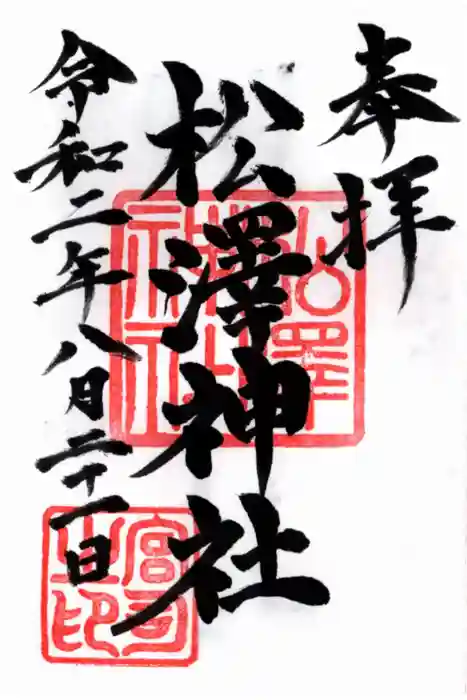 奉拝
松澤神社
令和二年八月二十一日
松澤神社之印
宮司之印